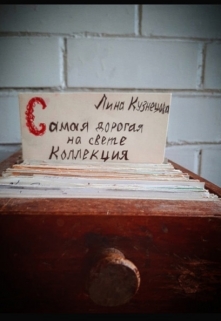 Лина Кузнецца
Самая дорогая
на свете
Коллекция